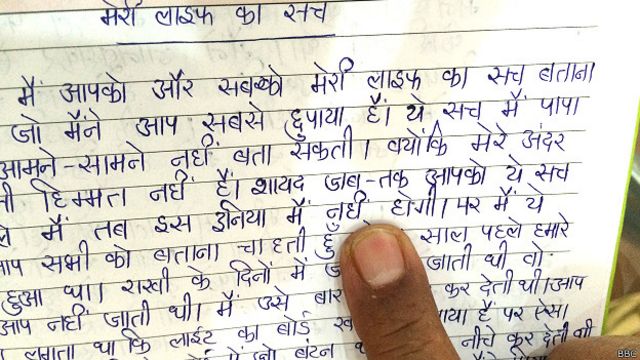 मेरी लाइफ का सच
मैं आपको और सबको मेरी लाइफ का सच बताना
जो मैंने आप सबसे छुपाया है। ये सच मैं पापा
आमने-सामने नहीं बता सकती। क्योंकि मेरे अंदर
हिम्मत नहीं है। शायद जब-तक आपको ये सच
मैं तब इस दुनिया में नहीं होगी। पर मैं ये
आप सभी को बताना चाहती साल पहले हमारे
हुआ था। राखी के दिनों में जाती थी वो
आप नहीं जाती थी। मैं उसे बार कर देती थी। आप
लगता था कि लाईट का बोर्ड पाया है पर ऐसा
बटन नीचे कर देती थी
BBC